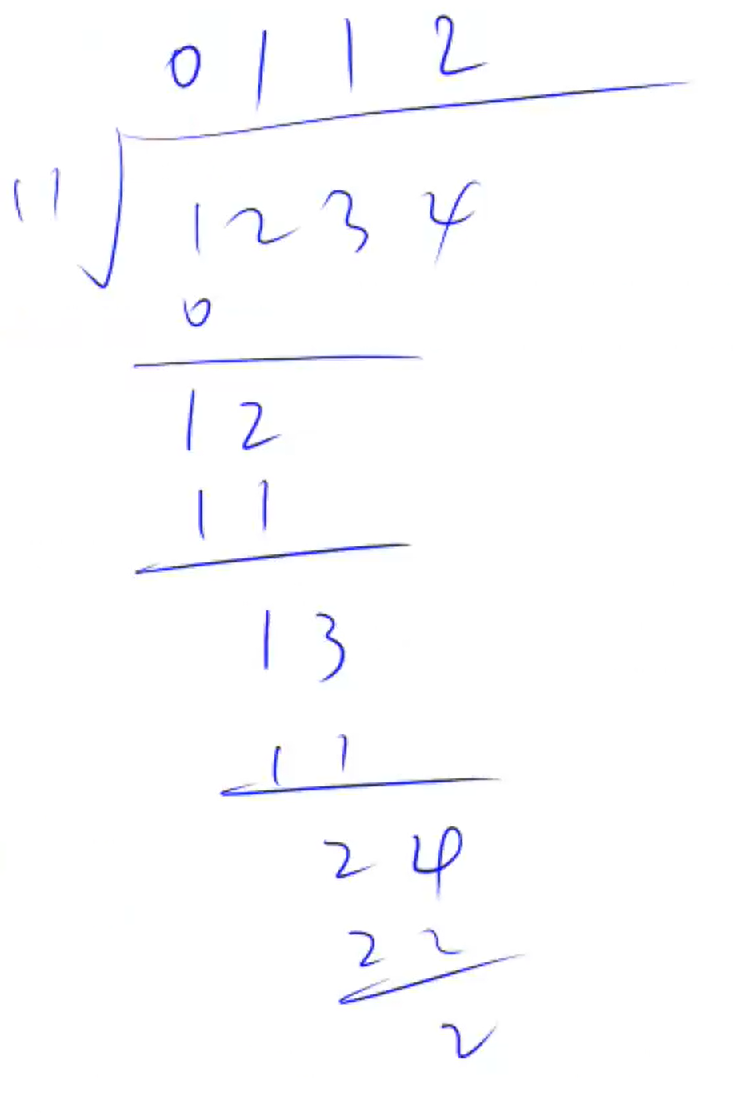 0112
11√1234
0
12
11
13
11
24
22
2